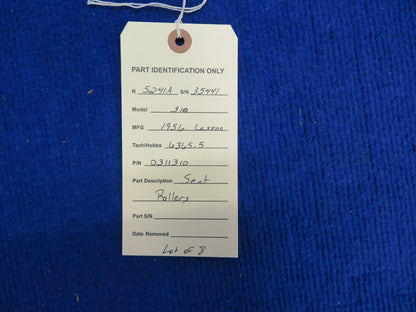 PART IDENTIFICATION ONLY
N 5241A S/N 35441
Model 310
MFG 1956 Cessna
Tach/Hobbs 6365.5
P/N 0311310
Part Description Seat
Rollers
Part S/N
Date Removed
Lot of 8